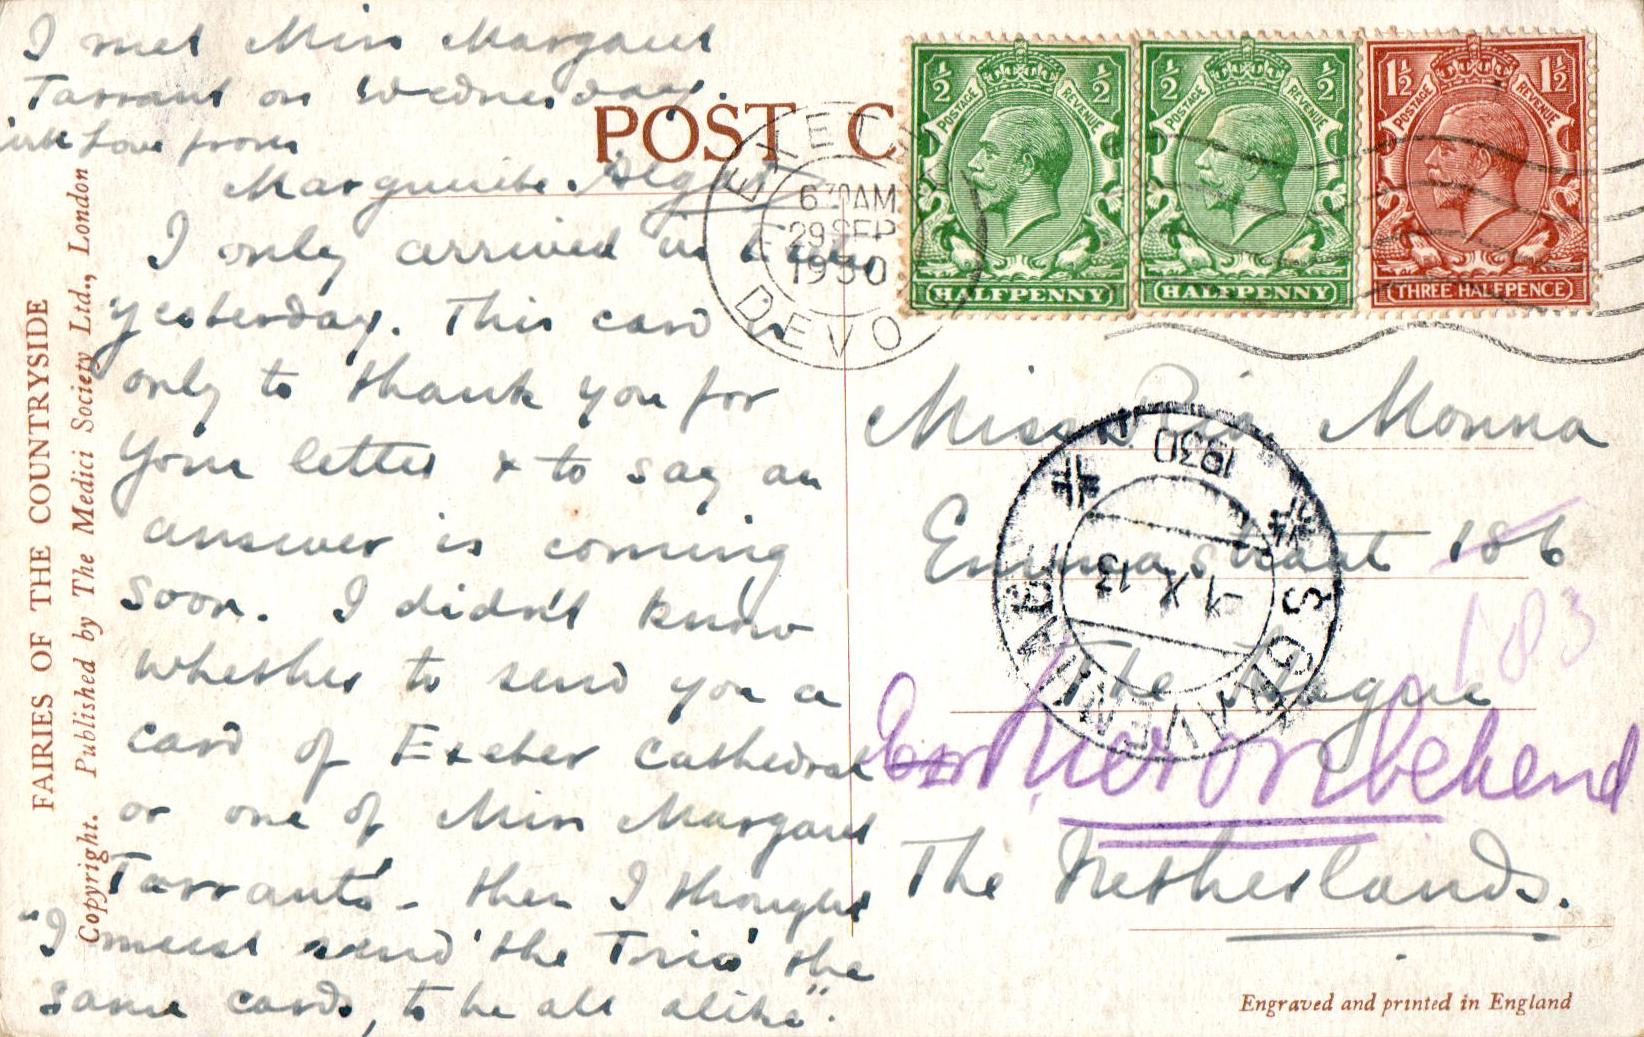 I met Miss Margaret
Tarrant on Wednesday.
with Love from
Marguerite
POST C
I only arrived in
yesterday. This card is
only to thank you for
your letter & to say an
answer is coming
soon. I didn't know
whether to send you a
card of Exeter Cathedral
or one of Miss Margaret
Tarrant's - then I thought
"I must send 'the Trio' the
same cards, to be all alike".
FAIRIES OF THE COUNTRYSIDE
Copyright. Published by The Medici Society Ltd., London
EXETER
6 30AM
29 SEP
1930
DEVON
½ ½
POSTAGE REVENUE
HALFPENNY
½ ½
POSTAGE REVENUE
HALFPENNY
1½ 1½
POSTAGE REVENUE
THREE HALFPENCE
Miss Ria Monna
Emmastraat 186
183
The Hague
hier onbekend
The Netherlands.
1930
-1 X 13
S GRAVENHAGE
Engraved and printed in England